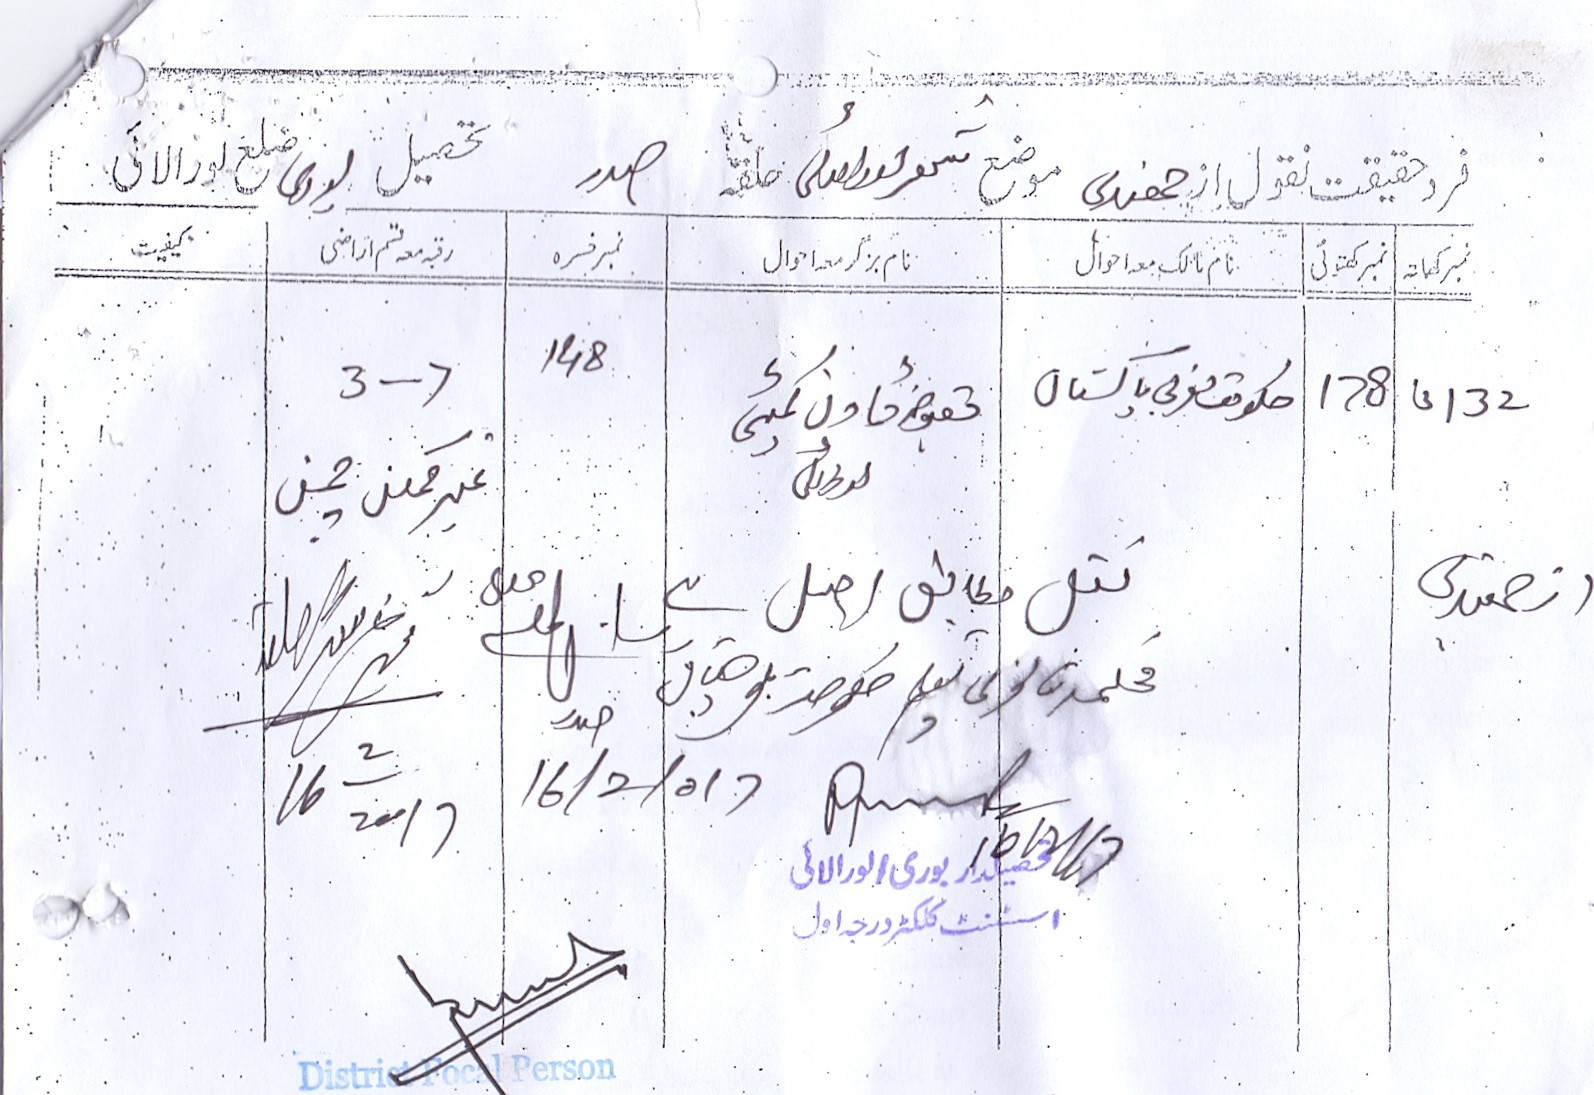 فرد حقیقت نقول از جمعبندی موضع شہر لورالائی حلقہ صدر تحصیل بوری ضلع لورالائی
نمبر کھاتہ نمبر کھتونی نام مالک معہ احوال نام بزگر معہ احوال نمبر خسرہ رقبہ معہ قسم اراضی کیفیت
132 تا 178 حکومت مغربی پاکستان مقبوضہ ٹاون کمیٹی 148 3-7
لورالائی غیر ممکن چمن
از جمعبندی
نقل مطابق اصل ہے
محکمہ قانونی حکومت بلوچستان
صدر
16/2/017
16 2/2017
16/2/17
تحصیلدار بوری لورالائی
اسسٹنٹ کلکٹر درجہ اول
District Focal Person